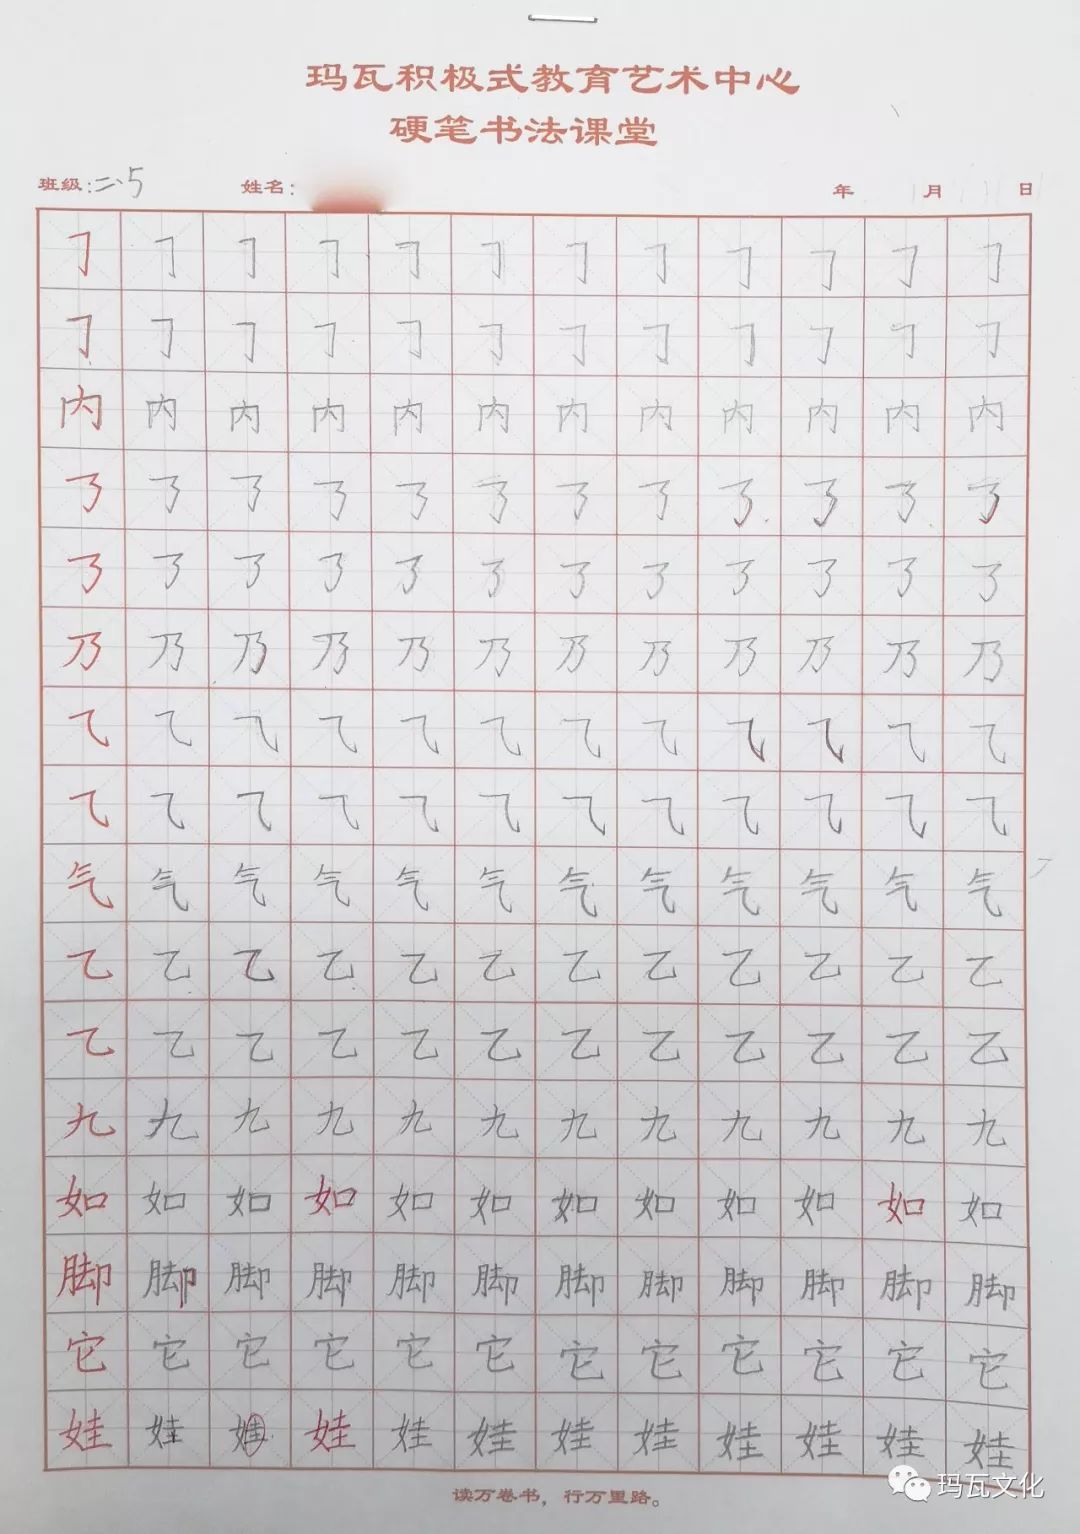 玛瓦积极式教育艺术中心
硬笔书法课堂
班级:二、5 姓名: 年 月 日
㇆ ㇆ ㇆ ㇆ ㇆ ㇆ ㇆ ㇆ ㇆ ㇆ ㇆ ㇆
㇆ ㇆ ㇆ ㇆ ㇆ ㇆ ㇆ ㇆ ㇆ ㇆ ㇆ ㇆
内 内 内 内 内 内 内 内 内 内 内 内
㇡ ㇡ ㇡ ㇡ ㇡ ㇡ ㇡ ㇡ ㇡ ㇡ ㇡ ㇡
㇡ ㇡ ㇡ ㇡ ㇡ ㇡ ㇡ ㇡ ㇡ ㇡ ㇡ ㇡
乃 乃 乃 乃 乃 乃 乃 乃 乃 乃 乃 乃
⺄ ⺄ ⺄ ⺄ ⺄ ⺄ ⺄ ⺄ ⺄ ⺄ ⺄ ⺄
⺄ ⺄ ⺄ ⺄ ⺄ ⺄ ⺄ ⺄ ⺄ ⺄ ⺄ ⺄
气 气 气 气 气 气 气 气 气 气 气 气
乙 乙 乙 乙 乙 乙 乙 乙 乙 乙 乙 乙
乙 乙 乙 乙 乙 乙 乙 乙 乙 乙 乙 乙
九 九 九 九 九 九 九 九 九 九 九 九
如 如 如 如 如 如 如 如 如 如 如 如
脚 脚 脚 脚 脚 脚 脚 脚 脚 脚 脚 脚
它 它 它 它 它 它 它 它 它 它 它 它
娃 娃 娃 娃 娃 娃 娃 娃 娃 娃 娃 娃
读万卷书，行万里路。
玛瓦文化